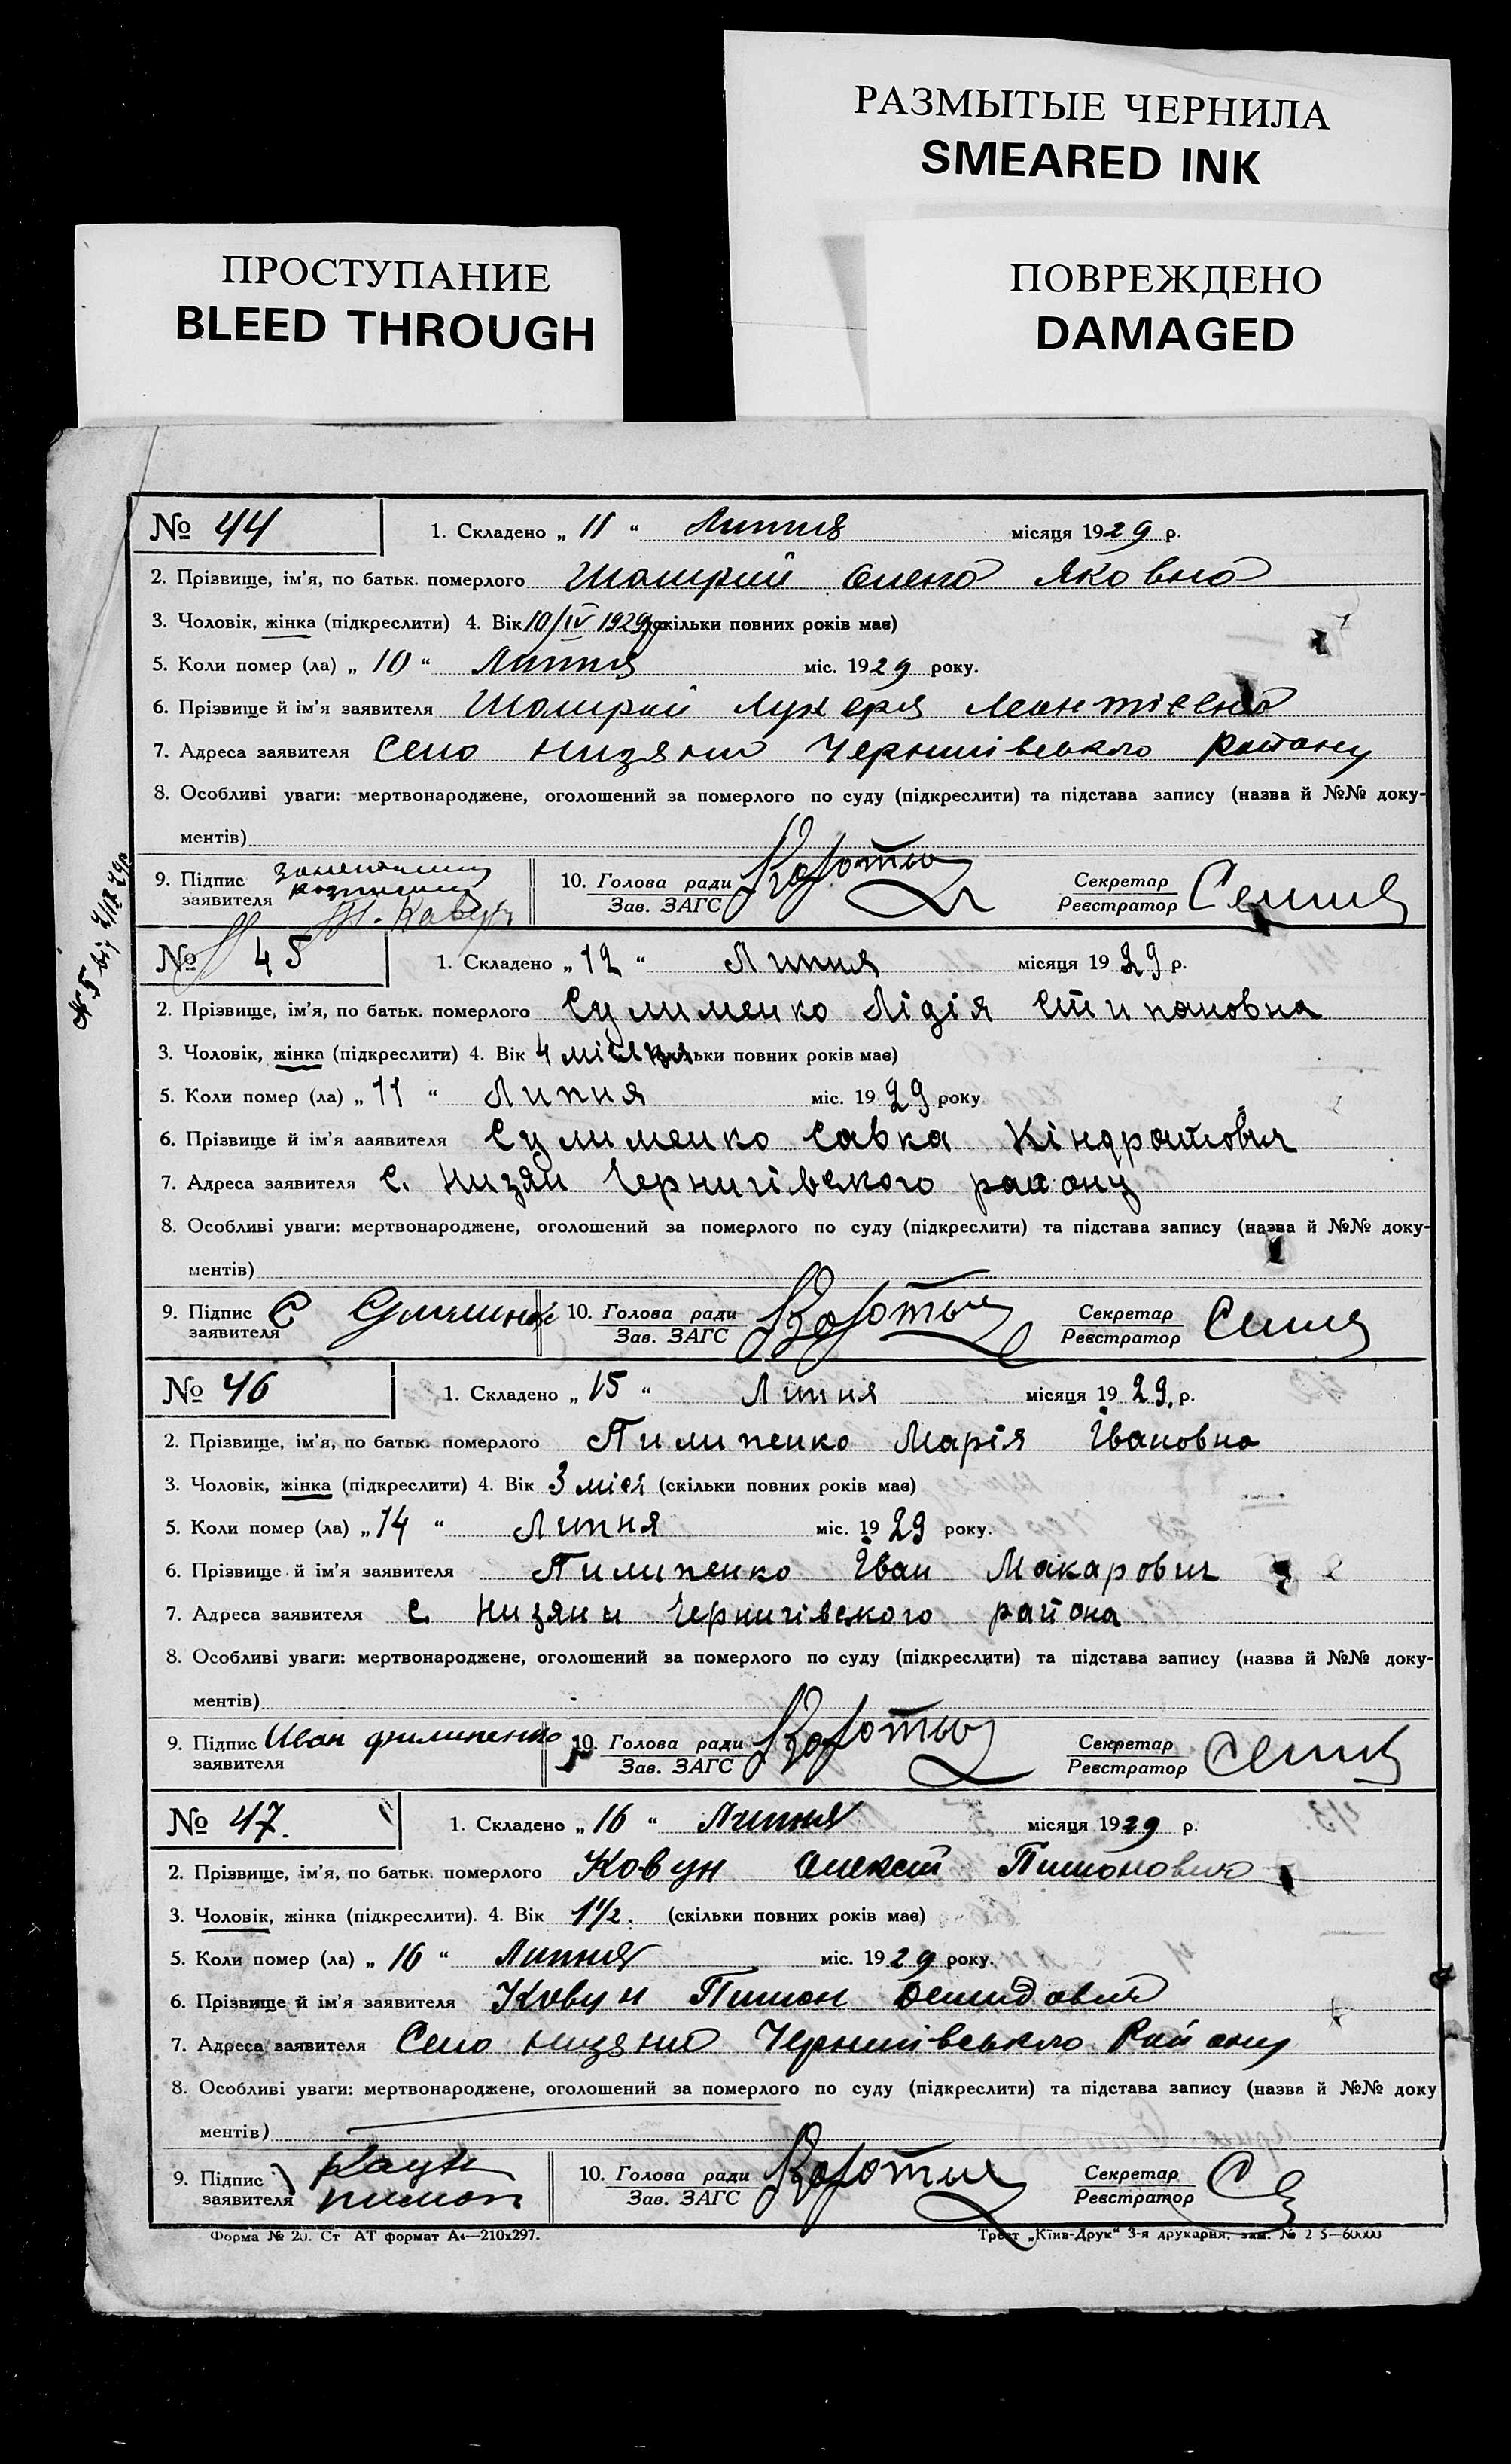 РАЗМЫТЫЕ ЧЕРНИЛА
SMEARED INK
ПРОСТУПАНИЕ
BLEED THROUGH
ПОВРЕЖДЕНО
DAMAGED
№ 44 1. Складено „ 11 “ Липня місяця 1929 р.
2. Прізвище, ім'я, по батьк. померлого Яковна
3. Чоловік, жінка (підкреслити) 4. Вік 10/IV 1929 (скільки повних років має)
5. Коли помер (ла) „ 10 “ Липня міс. 1929 року.
6. Прізвище й ім'я заявителя Лукеря Леонтієвна
7. Адреса заявителя Село Чернигівського Району
8. Особливі уваги: мертвонароджене, оголошений за померлого по суду (підкреслити) та підстава запису (назва й №№ доку-
ментів)
9. Підпис заявителя 10. Голова ради Зав. ЗАГС Секретар Реєстратор
№ 45 1. Складено „ 12 “ Липня місяця 1929 р.
2. Прізвище, ім'я, по батьк. померлого Сулименко Лідія Стипановна
3. Чоловік, жінка (підкреслити) 4. Вік 4 місяця (скільки повних років має)
5. Коли помер (ла) „ 11 “ Липня міс. 1929 року
6. Прізвище й ім'я заявителя Сулименко Савка Кіндратович
7. Адреса заявителя с. Чернигівского району
8. Особливі уваги: мертвонароджене, оголошений за померлого по суду (підкреслити) та підстава запису (назва й №№ доку-
ментів)
9. Підпис заявителя С 10. Голова ради Зав. ЗАГС Секретар Реєстратор
№ 46 1. Складено „ 15 “ Липня місяця 1929. р.
2. Прізвище, ім'я, по батьк. померлого Пилипенко Марія Івановна
3. Чоловік, жінка (підкреслити) 4. Вік 3 міся (скільки повних років має)
5. Коли помер (ла) „ 14 “ Липня міс. 1929 року.
6. Прізвище й ім'я заявителя Пилипенко Іван Макарович
7. Адреса заявителя с. Низяни Чернигівского района
8. Особливі уваги: мертвонароджене, оголошений за померлого по суду (підкреслити) та підстава запису (назва й №№ доку-
ментів)
9. Підпис заявителя Иван филипенко 10. Голова ради Зав. ЗАГС Секретар Реєстратор
№ 47. 1. Складено „ 16 “ Липня місяця 1929 р.
2. Прізвище, ім'я, по батьк. померлого Ковун Олексій Пимонович
3. Чоловік, жінка (підкреслити). 4. Вік 1½. (скільки повних років має)
5. Коли помер (ла) „ 16 “ Липня міс. 1929 року.
6. Прізвище й ім'я заявителя Ковун Пимон Демидович
7. Адреса заявителя Село Чернигівського Району
8. Особливі уваги: мертвонароджене, оголошений за померлого по суду (підкреслити) та підстава запису (назва й №№ доку
ментів)
9. Підпис заявителя Каун пимон 10. Голова ради Зав. ЗАГС Секретар Реєстратор
Форма № 20. Ст АТ формат А4—210х297. Трест „Київ-Друк“ 3-я друкарня, зам. №